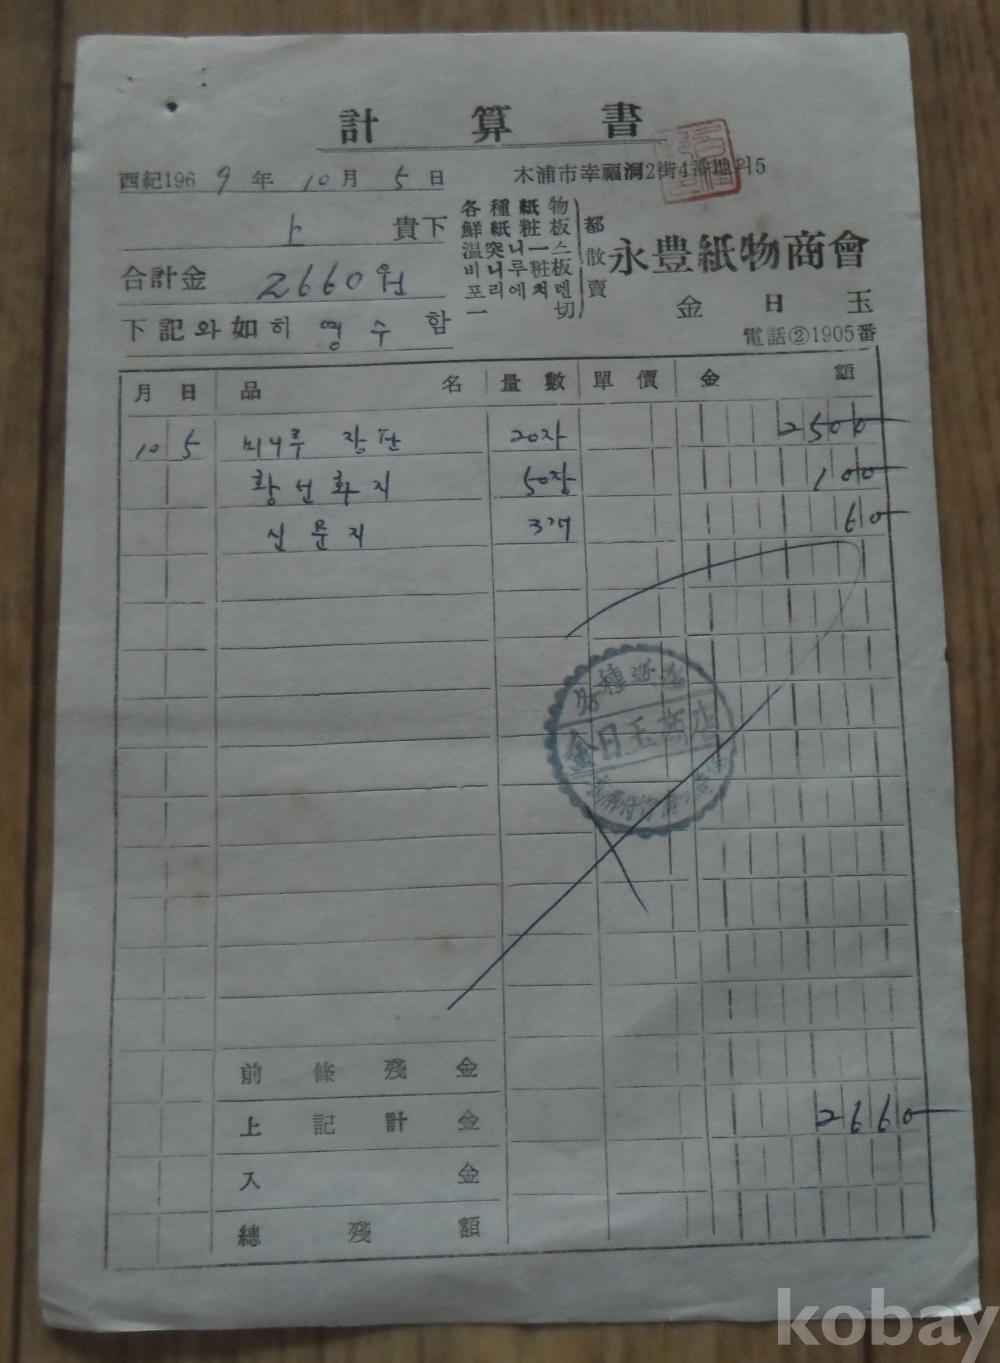 計算書
西紀196 9年 10月 5日
木浦市幸福洞2街4番地의5
上 貴下
合計金 2660원
下記와如히 영수 함
各種紙物
鮮紙粧板
温突니一스
비니루粧板
포리에치렌
一切
都散賣
永豊紙物商會
金日玉
電話②1905番
月 日 品名 量數 單價 金額
10 5 비니루 장판 20자 2500
황선화지 50장 100
신문지 3개 60
各種紙
金日玉商店
前條殘金
上記計金 2660
入金
總殘額
kobay